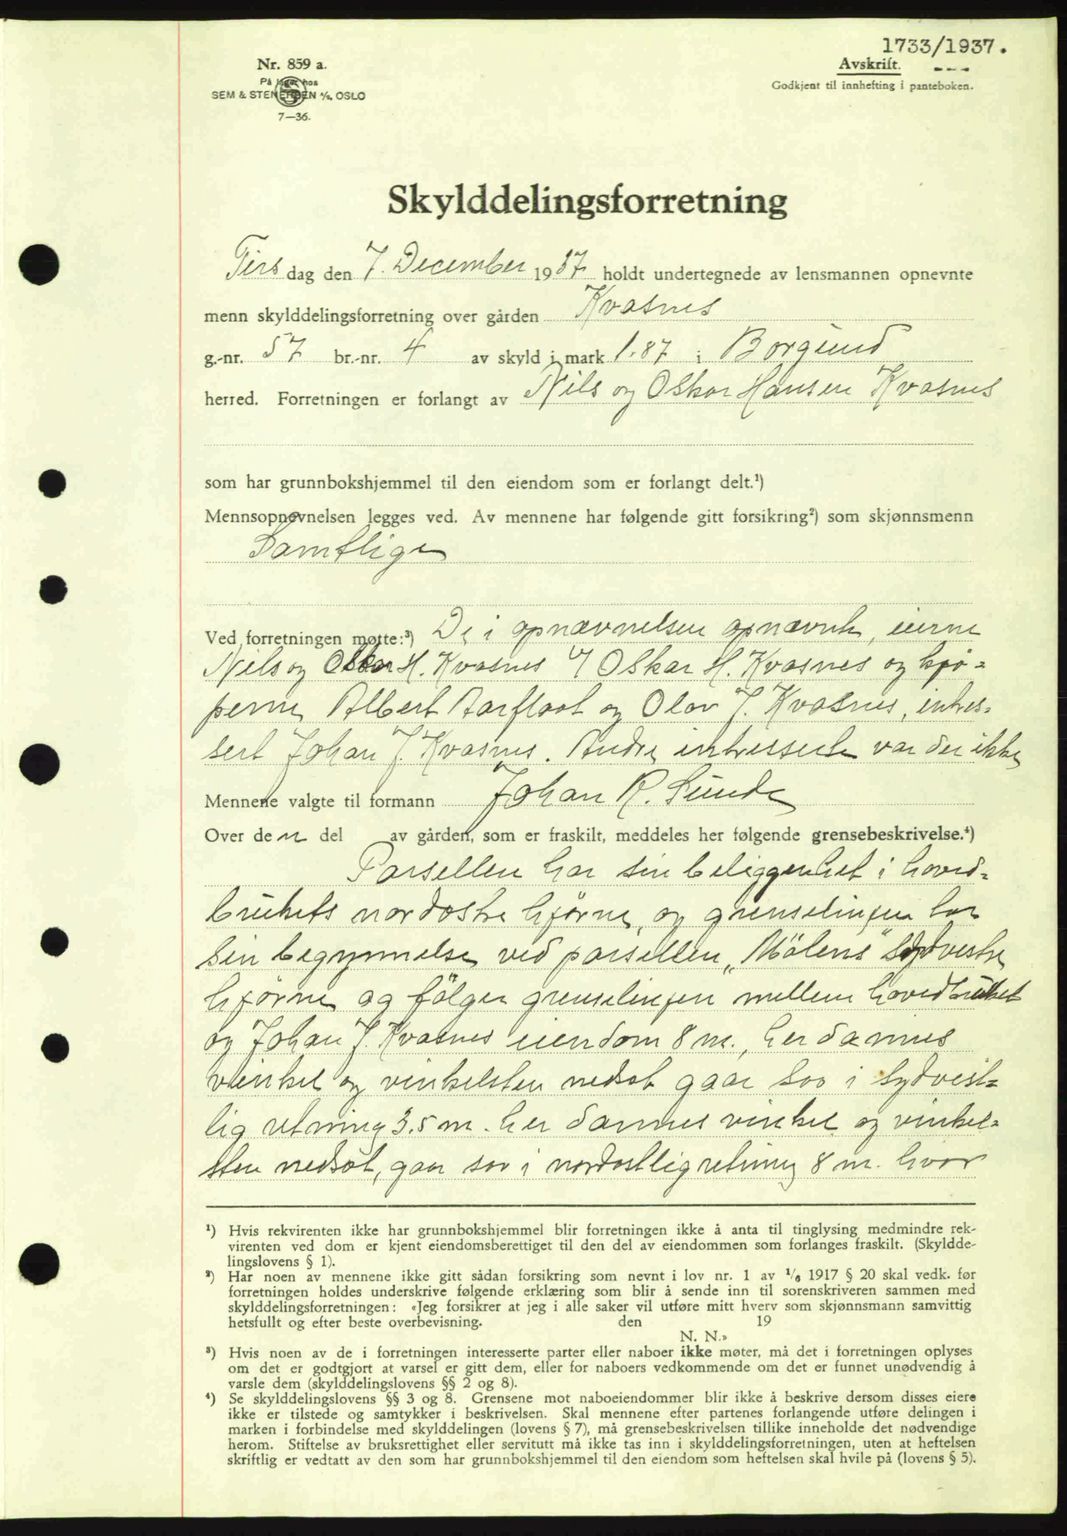 1733/1937.
Nr. 859 a.
På lager hos
SEM & STENERSEN A/S, OSLO
7—36.
Avskrift.
Godkjent til innhefting i panteboken.
Skylddelingsforretning
Tirsdag den 7. December 1937 holdt undertegnede av lensmannen opnevnte
menn skylddelingsforretning over gården Kvasnes
g.-nr. 57 br.-nr. 4 av skyld i mark 1.87 i Borgund
herred. Forretningen er forlangt av Nils og Oskar Hansen Kvasnes
som har grunnbokshjemmel til den eiendom som er forlangt delt.¹)
Mennsopnevnelsen legges ved. Av mennene har følgende gitt forsikring²) som skjønnsmenn
Samtlige
Ved forretningen møtte:³) De i opnævnelsen opnævnte, eierne
Nils og Oskar H. Kvasnes v/ Oskar H. Kvasnes og kjø-
perne Albert Aarflaot og Olav J. Kvasnes, intres-
sert Johan J. Kvasnes. Andre intresserte var der ikke
Mennene valgte til formann Johan R. Sunde
Over den del av gården, som er fraskilt, meddeles her følgende grensebeskrivelse.⁴)
Parsellen har sin beliggenhet i hoved-
brukets nordøstre hjørne, og grenselinjen har
sin begynnelse ved parsellen „Mölens" sydvestre
hjørne og fölger grenselinjen mellem hovedbruket
og Johan J. Kvasnes eiendom 8 m., her dannes
vinkel og vinkelsten nedsat gaar saa i sydvest-
lig retning 3.5 m. her dannes vinkel og vinkel-
sten nedsat, gaar saa i nordostlig retning 8 m. hvor
¹) Hvis rekvirenten ikke har grunnbokshjemmel blir forretningen ikke å anta til tinglysing medmindre rek-
virenten ved dom er kjent eiendomsberettiget til den del av eiendommen som forlanges fraskilt. (Skyldde-
lingslovens § 1).
²) Har noen av mennene ikke gitt sådan forsikring som nevnt i lov nr. 1 av 1/6 1917 § 20 skal vedk. før
forretningen holdes underskrive følgende erklæring som blir å sende inn til sorenskriveren sammen med
skylddelingsforretningen: «Jeg forsikrer at jeg i alle saker vil utføre mitt hverv som skjønnsmann samvittig
hetsfullt og efter beste overbevisning. den 19
N. N.»
³) Hvis noen av de i forretningen interesserte parter eller naboer ikke møter, må det i forretningen oplyses
om det er godtgjort at varsel er gitt dem, eller for naboers vedkommende om det er funnet unødvendig å
varsle dem (skylddelingslovens §§ 2 og 8).
⁴) Se skylddelingslovens §§ 3 og 8. Grensene mot naboeiendommer blir ikke å beskrive dersom disses eiere
ikke er tilstede og samtykker i beskrivelsen. Skal mennene efter partenes forlangende utføre delingen i
marken i forbindelse med skylddelingen (lovens § 7), må grensebeskrivelsen tillike inneholde det nødvendige
herom. Stiftelse av bruksrettighet eller servitutt må ikke tas inn i skylddelingsforretningen, uten at heftelsen
skriftlig er vedtatt av den som har grunnbokshjemmel til den eiendom som heftelsen skal hvile på (lovens § 5).